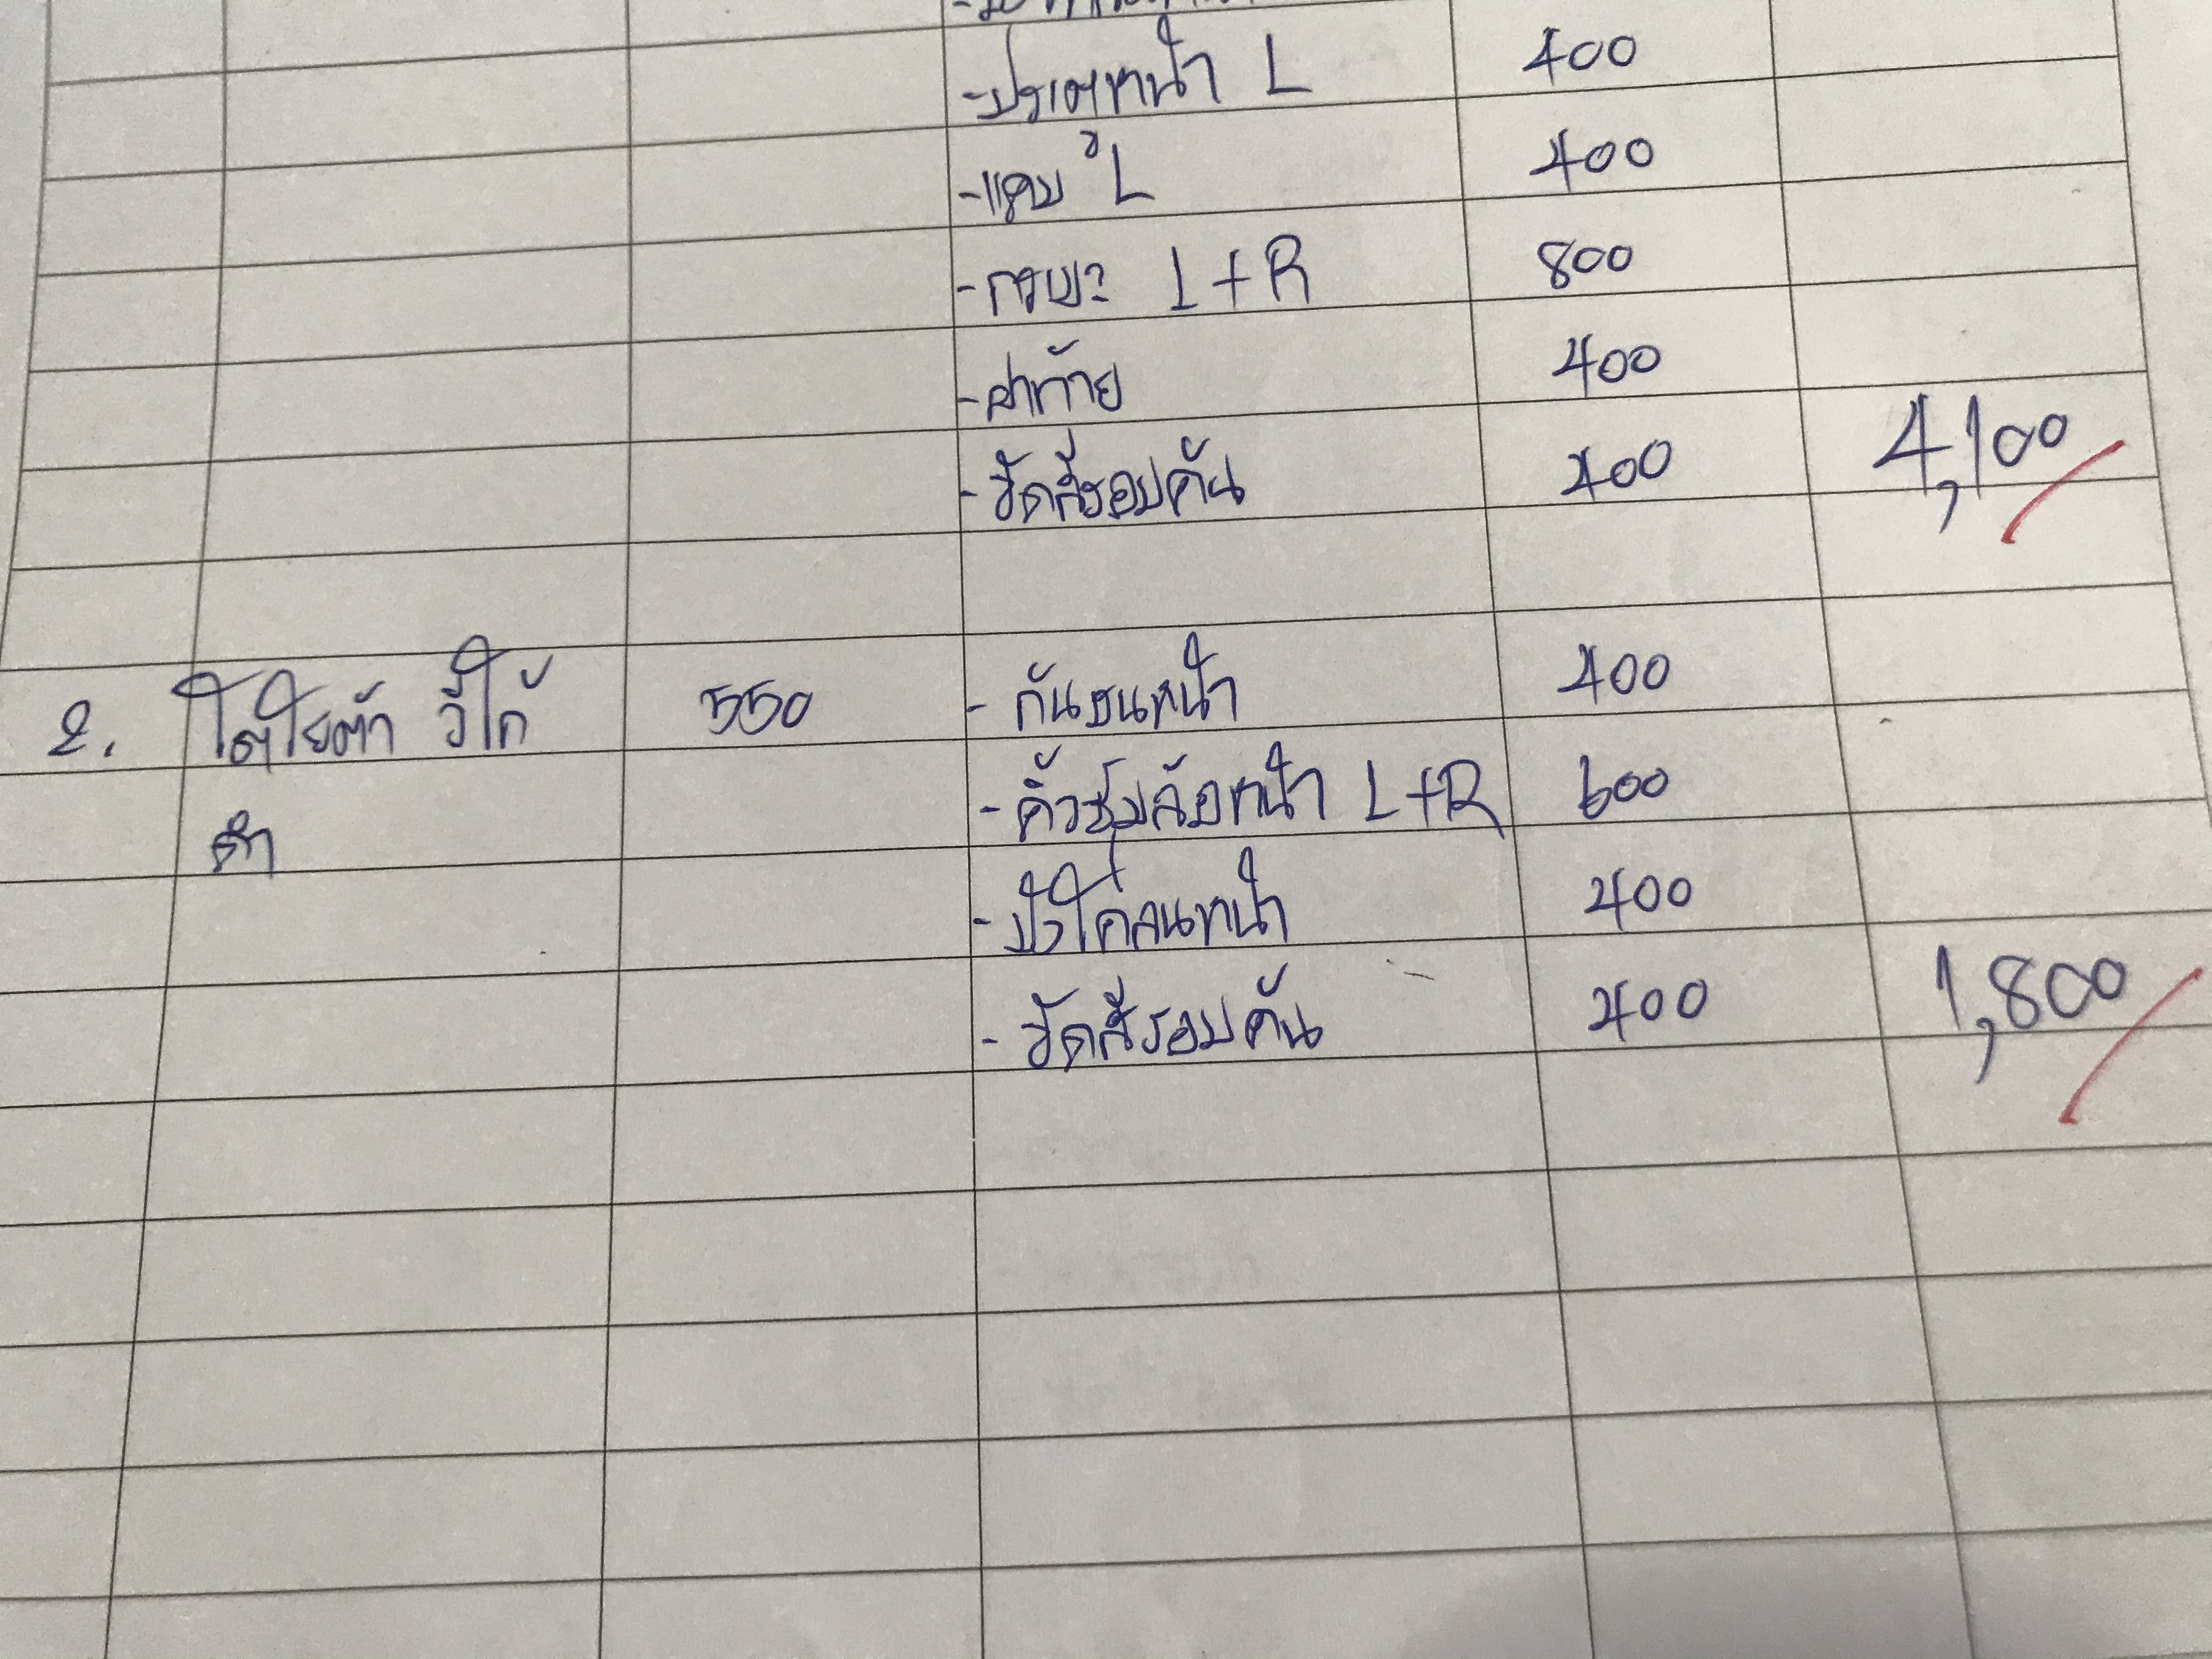 -ประตูหน้า L 400
-แคบ L 400
-กระบะ L+R 800
-ฝาท้าย 400
-ขัดสีรอบคัน 400 4,100
2. โตโยต้า วีโก้ 550 - กันชนหน้า 400
ดำ - คิ้วซุ้มล้อหน้า L+R 600
- บังโคลนหน้า 400
- ขัดสีรอบคัน 400 1,800